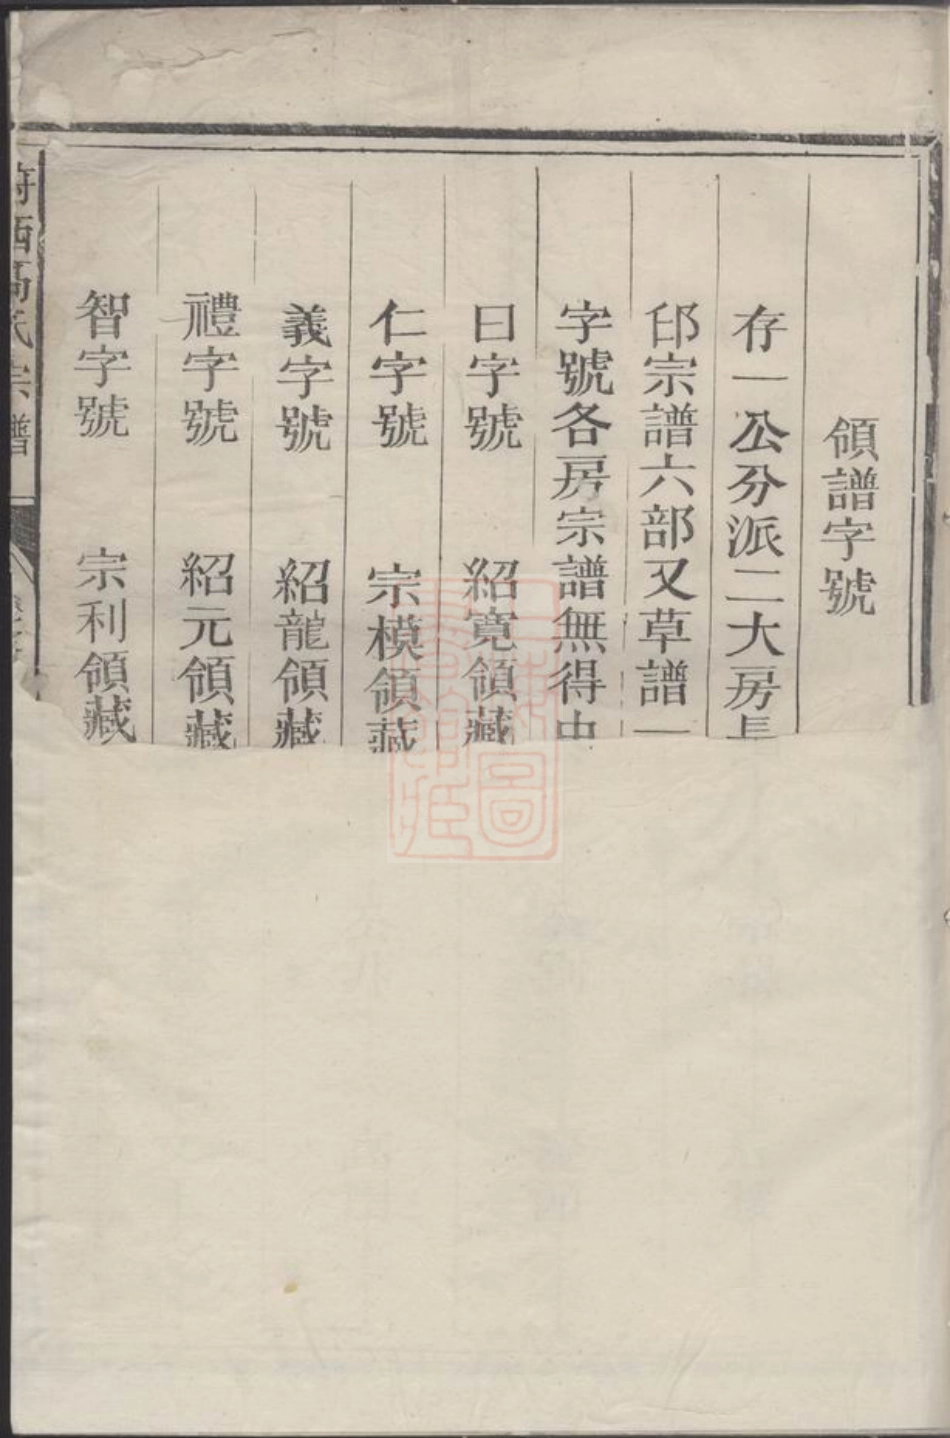 領譜字號
存一公分派二大房長
邱宗譜六部又草譜一
字號各房宗譜無得由
曰字號 紹寬領藏
仁字號 宗模領藏
義字號 紹龍領藏
禮字號 紹元領藏
智字號 宗利領藏
西高氏宗譜